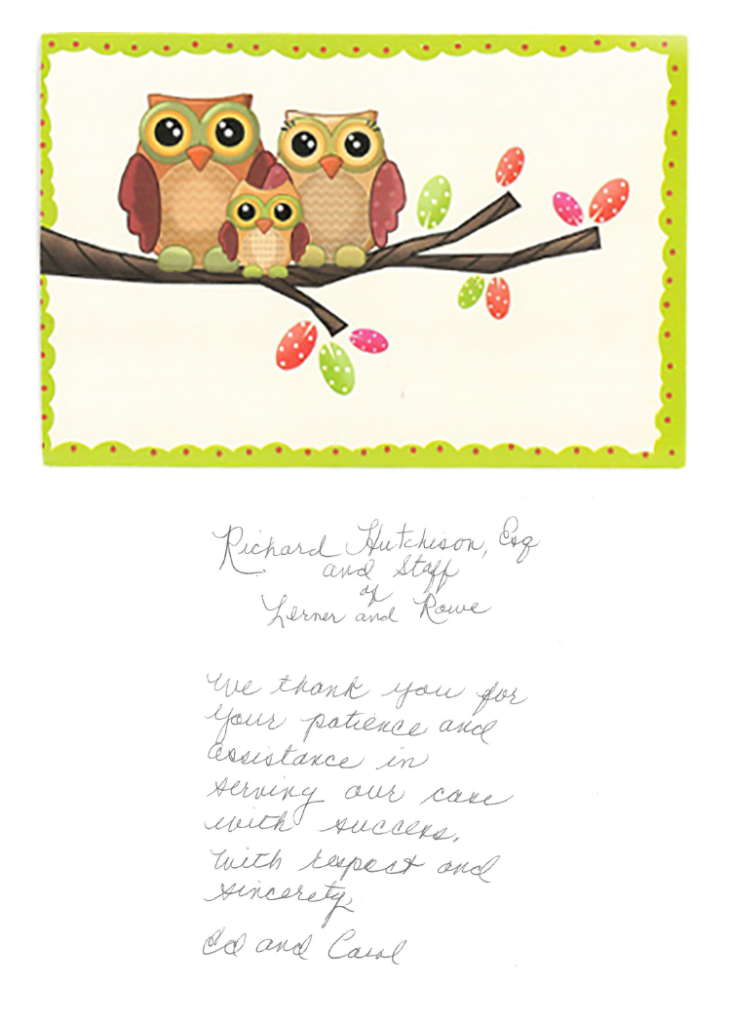 Richard Hutchison, Esq
and Staff
of
Lerner and Rowe
We thank you for
your patience and
assistance in
serving our case
with success.
With respect and
sincerety,
Ed and Carol